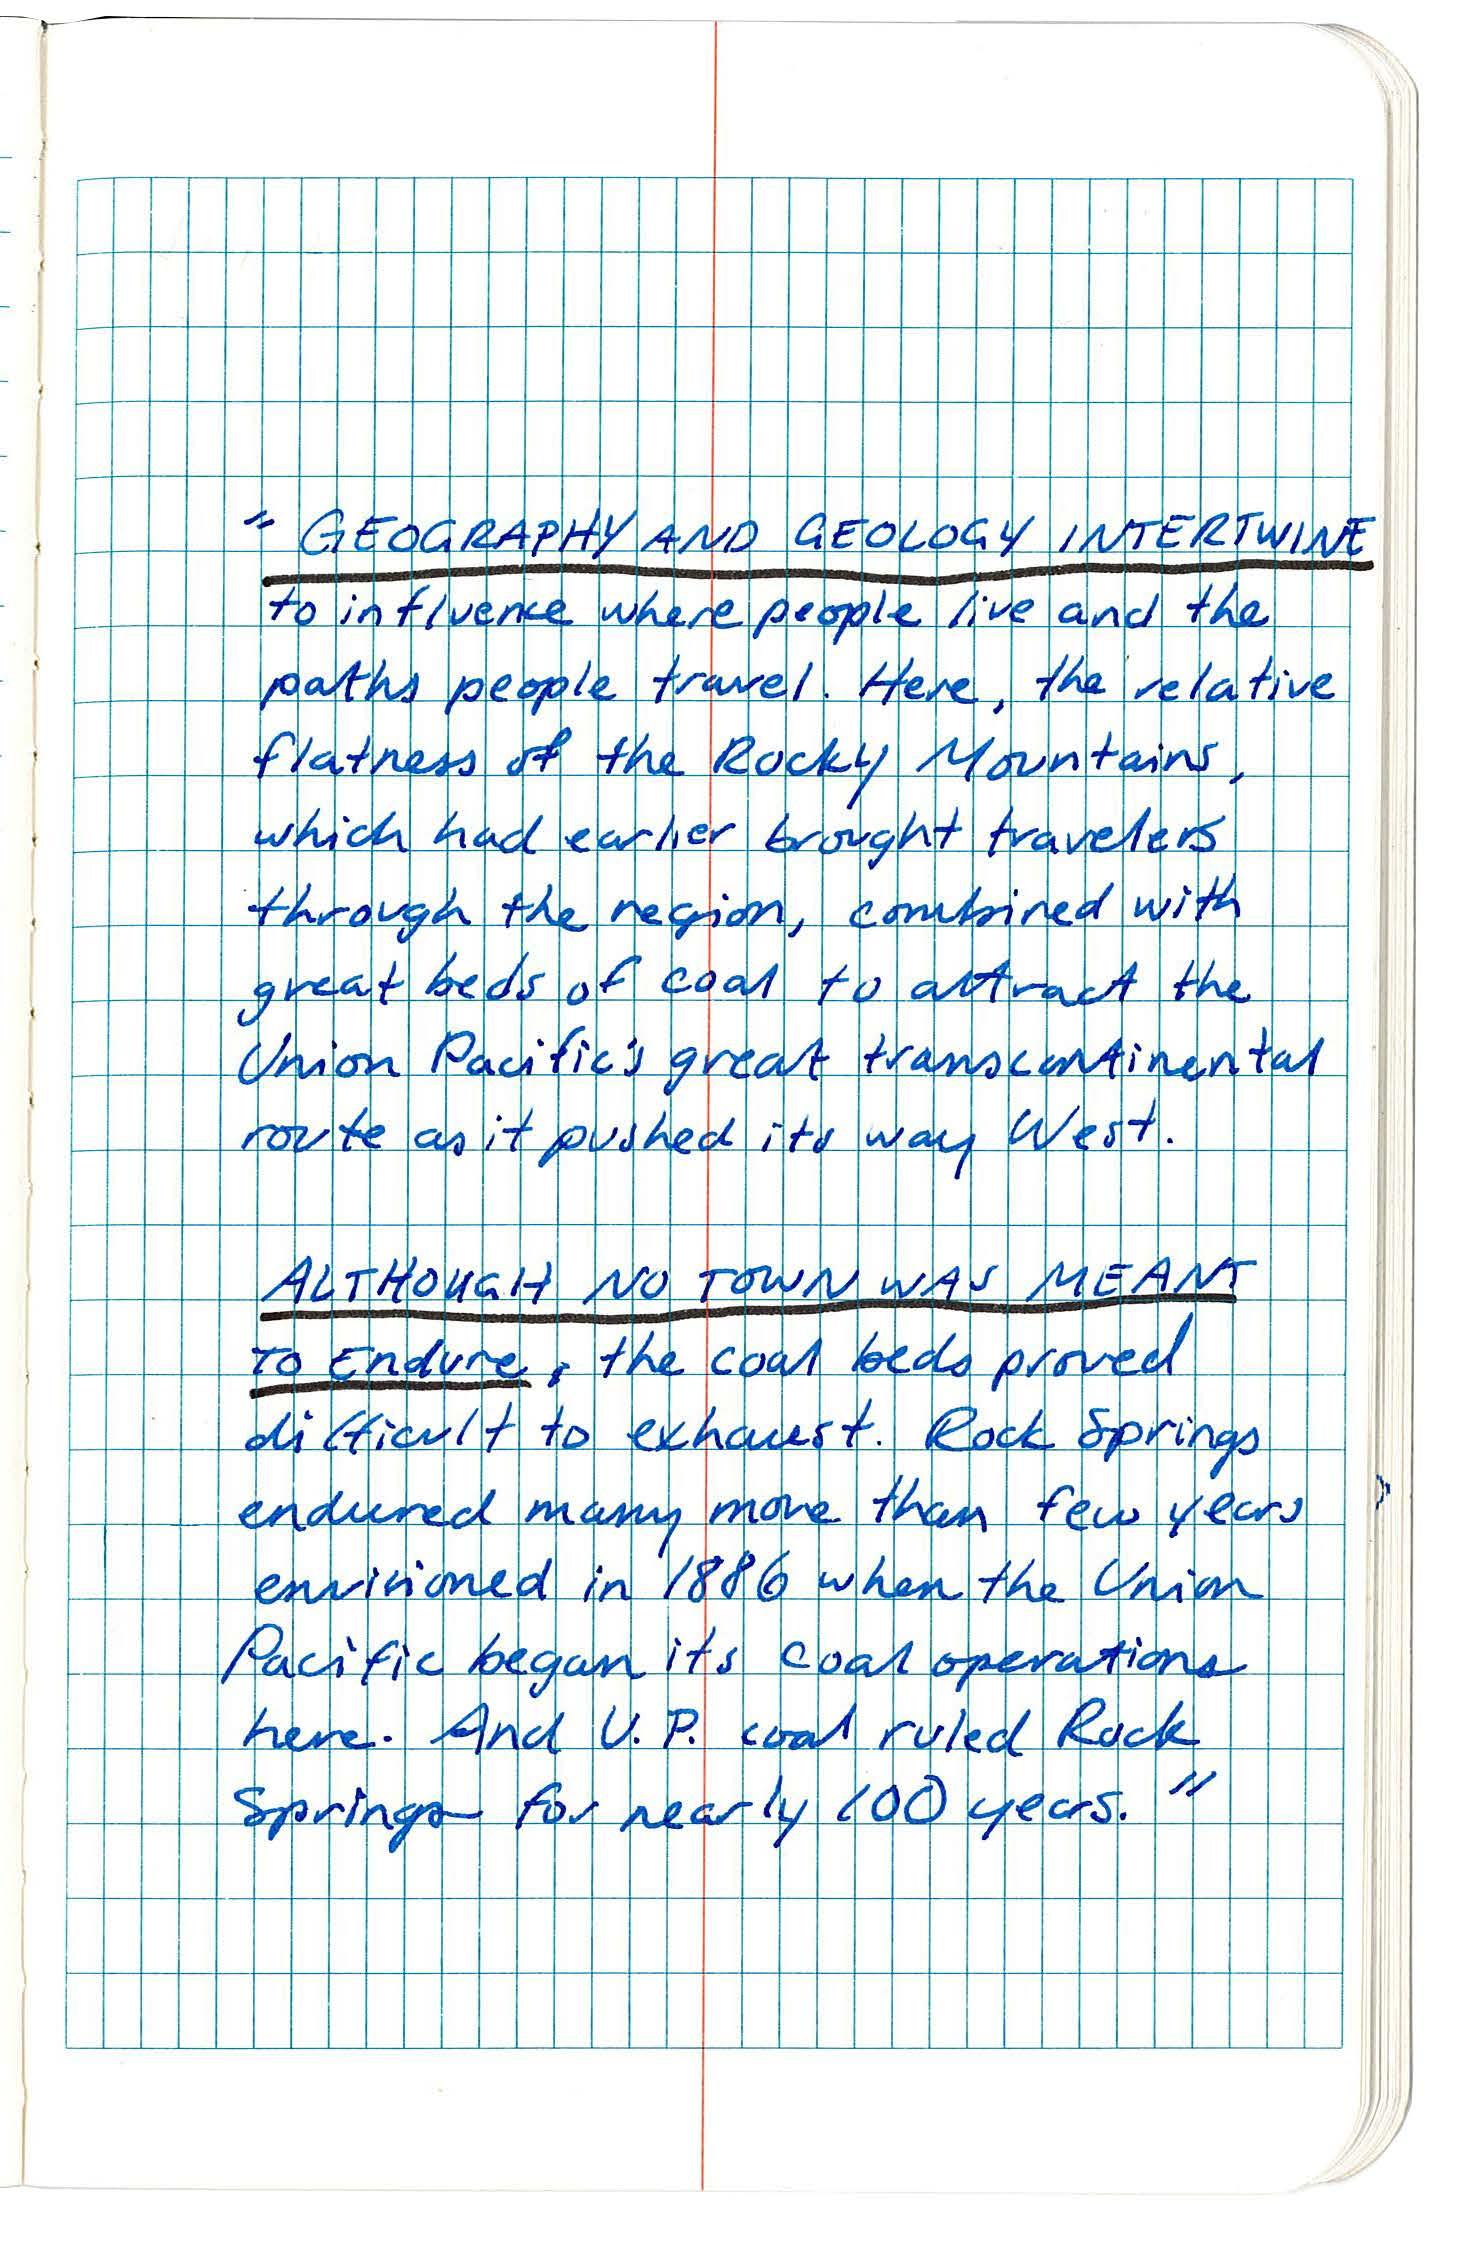 " GEOGRAPHY AND GEOLOGY INTERTWINE
to influence where people live and the
paths people travel. Here, the relative
flatness of the Rocky Mountains,
which had earlier brought travelers
through the region, combined with
great beds of coal to attract the
Union Pacific's great transcontinental
route as it pushed its way West.
ALTHOUGH NO TOWN WAS MEANT
TO ENDURE, the coal beds proved
difficult to exhaust. Rock Springs
endured many more than few years
envisioned in 1886 when the Union
Pacific began its coal operations
here. And U.P. coal ruled Rock
Springs for nearly 100 years. "